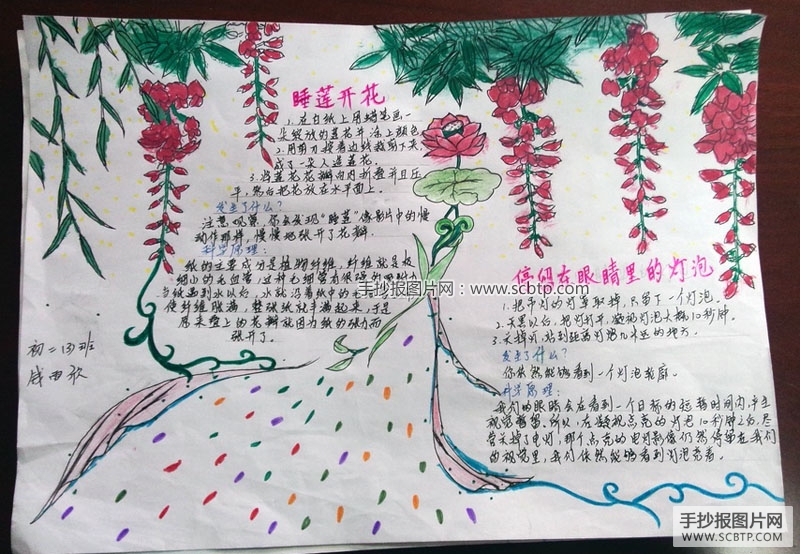 睡莲开花
1.在白纸上用蜡笔画一
朵绽放的莲花并涂上颜色
2.用剪刀按着边线裁剪下来,
成了一朵人造莲花。
3.将莲花花瓣向内折叠并且压
平,然后把花放在水平面上。
发生了什么?
注意观察,你会发现“睡莲”像影片中的慢
动作那样,慢慢地张开了花瓣
科学原理:
纸的主要成分是植物纤维,纤维就是极
细小的毛细管,这种毛细管有很强的吸附力
当纸遇到水以后,水就沿着纸中的毛
使纤维胀满,整张纸就丰满起来,于是
原来叠上的花瓣就因为纸的张力而
张开了。
手抄报图片网:www.scbtp.com
停留在眼睛里的灯泡
1.把吊灯的灯罩取掉,只留下一个灯泡。
2.天黑以后,把灯打开,凝视灯泡大概10秒钟。
3.关掉灯,站到距离灯泡几米远的地方。
发生了什么?
你依然能够看到一个灯泡轮廓。
科学原理:
我们的眼睛会在看到一个目标的短暂时间内,产生
视觉暂留。所以,在凝视点亮的灯泡10秒钟之后,尽
管关掉了电灯,那个点亮的电灯影像仍然停留在我们
的视觉里,我们依然能够看到灯泡亮着。
初二四班
手抄报图片网
WWW.SCBTP.COM